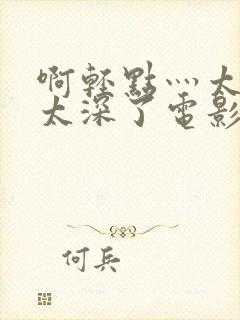 啊轻點灬太
太深了電影
何兵